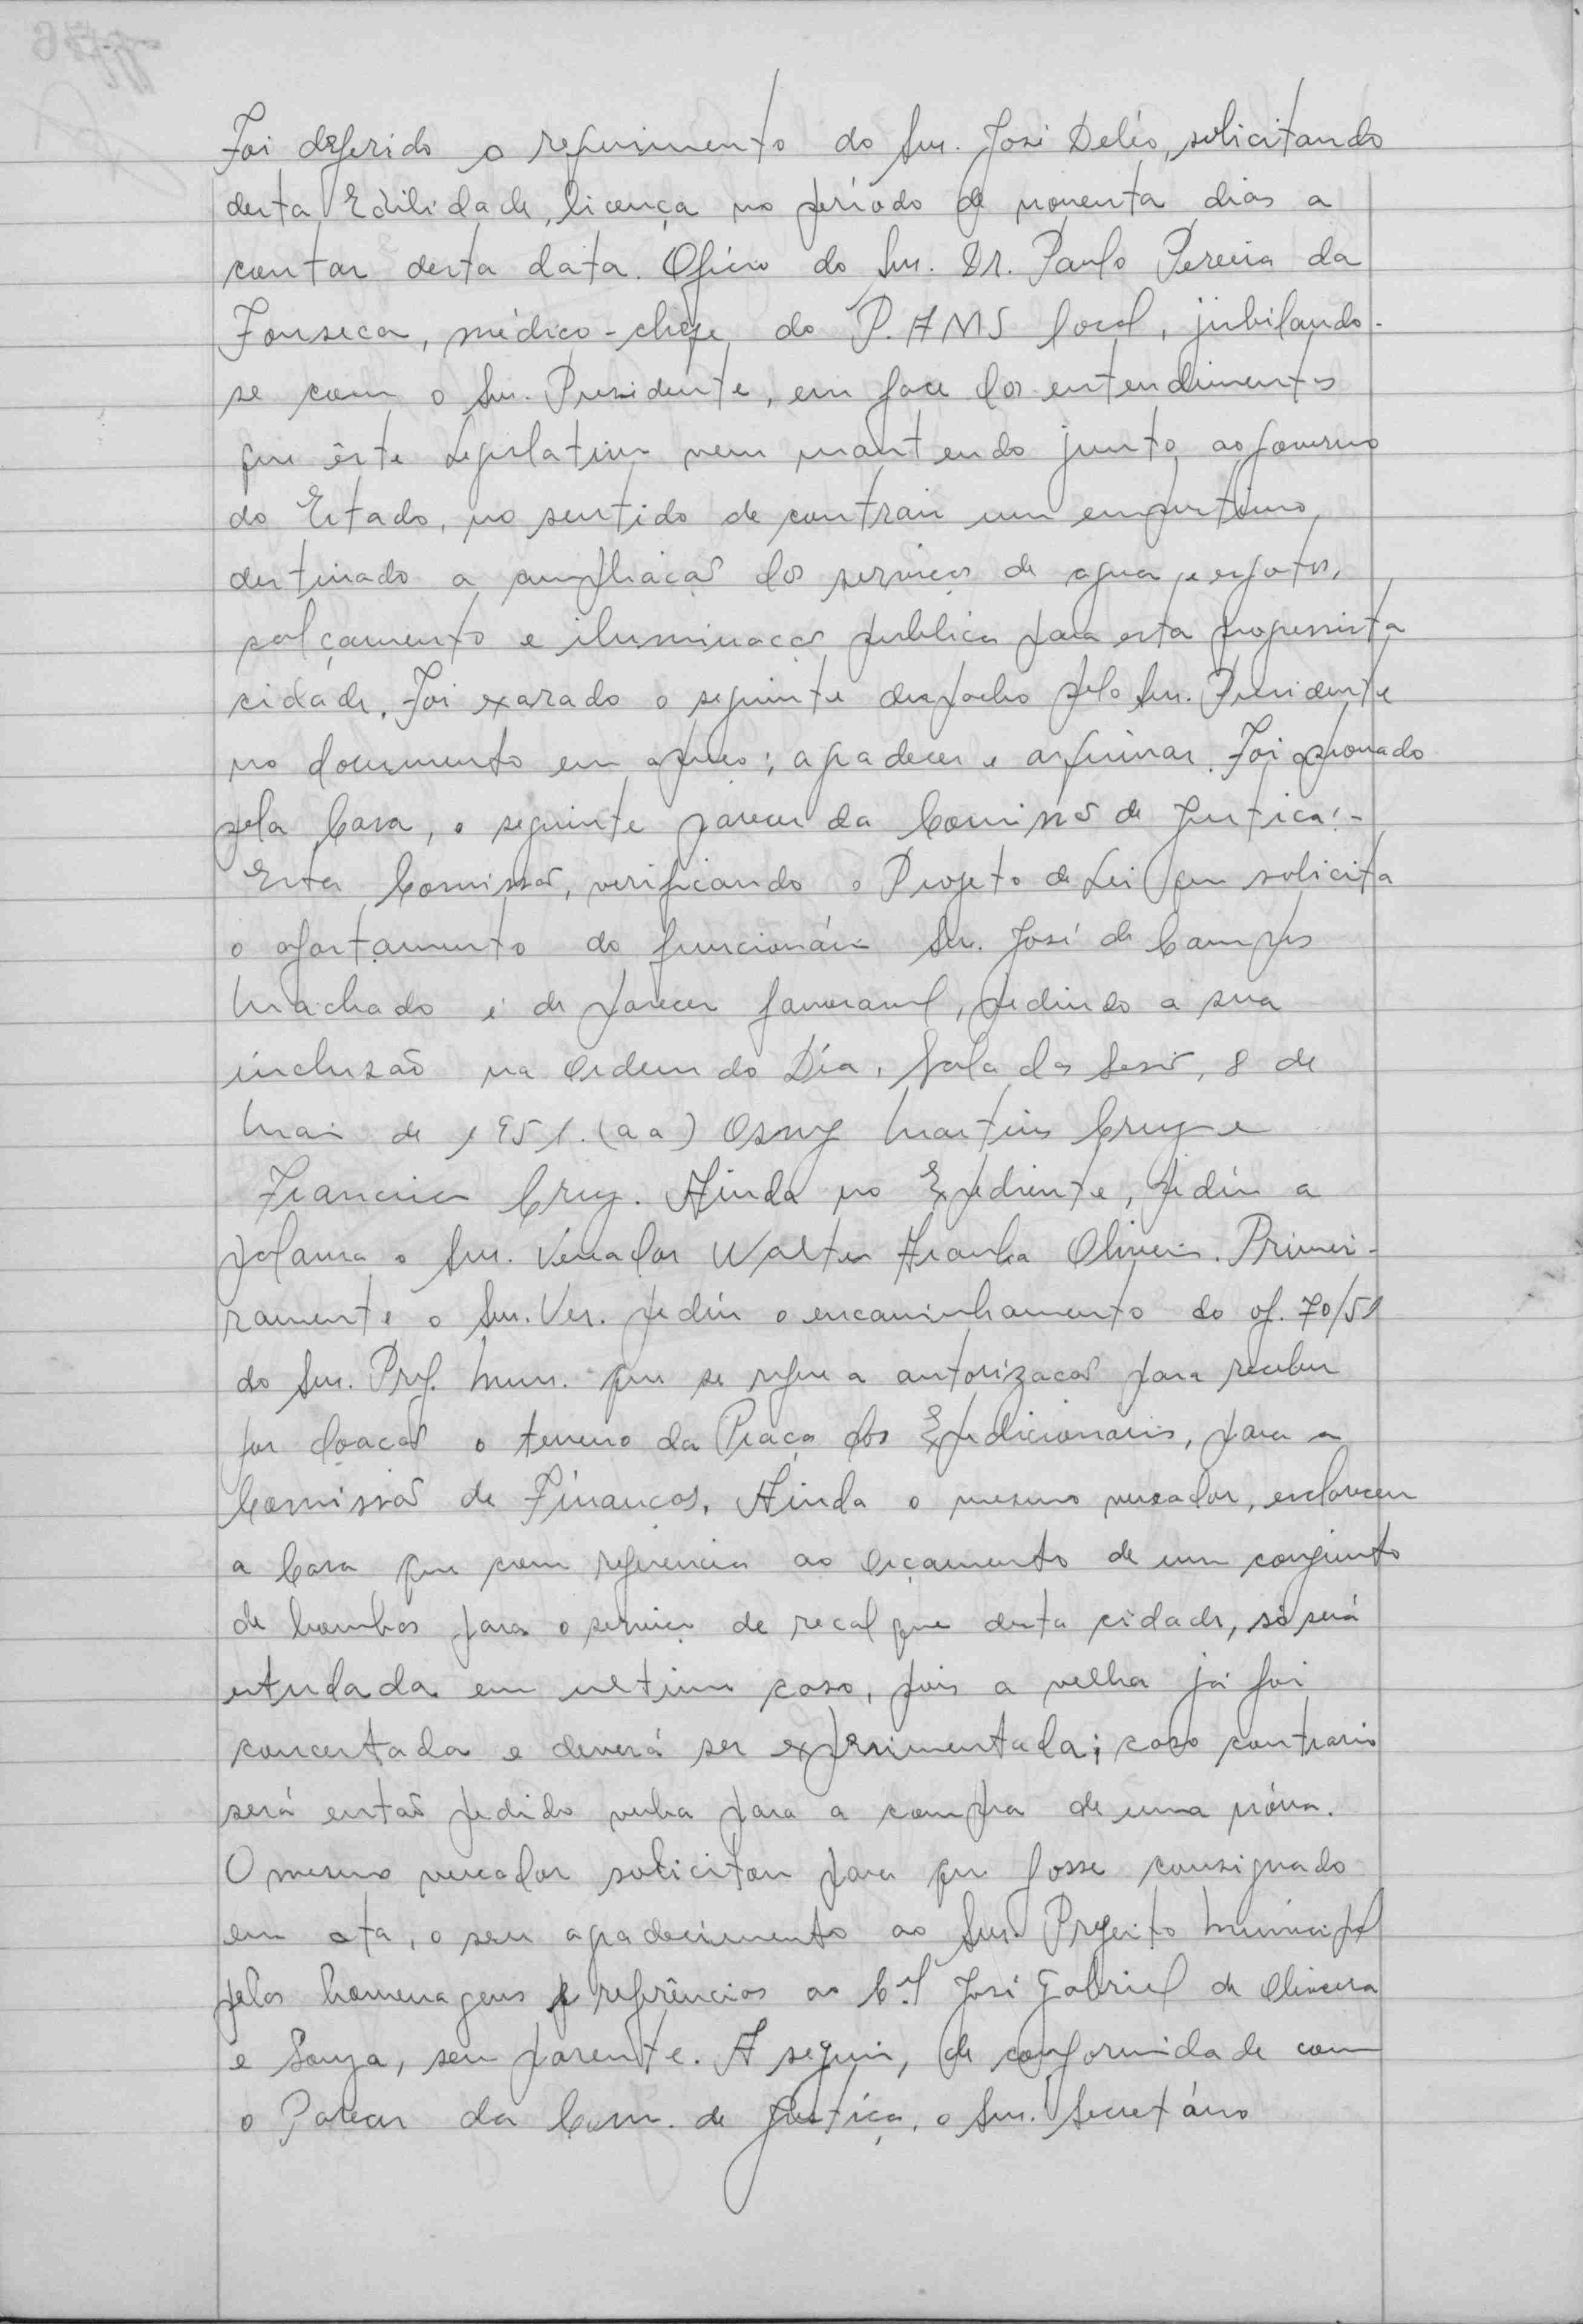 Foi deferido o requerimento do Snr. José Deléo, solicitando
desta Edilidade, licença no período de noventa dias a
contar desta data. Ofício do Snr. Dr. Paulo Pereira da
Fonseca, médico-chefe do P.AMS local, jubilando-
se com o Snr. Presidente, em face dos entendimentos
que êste Legislativo vem mantendo junto ao governo
do Estado, no sentido de contrair um emprestimo,
destinado a ampliação dos serviços de agua e esgotos,
calçamento e iluminação publica para esta progressista
cidade. Foi exarado o seguinte despacho pelo Snr. Presidente
no documento em apreço; agradecer e arquivar. Foi aprovado
pela Casa, o seguinte parecer da Comissão de Justiça:-
Esta Comissão, verificando o Projeto de Lei que solicita
o afastamento do funcionário Snr. José de Campos
Machado é de parecer favoravel, pedindo a sua
inclusão na Ordem do Dia, Sala das Sessões, 8 de
Maio de 1951. (aa) Osny Martins Cruz e
Francisco Cruz. Ainda no Expediente, pediu a
palavra o Snr. Vereador Walter Aranha Oliveira. Primei-
ramente o Snr. Ver. pediu o encaminhamento do of. 70/51
do Snr. Pref. Mun. que se refere a autorização para receber
por doação o terreno da Praça dos Expedicionarios, para a
Comissão de Finanças. Ainda o mesmo vereador, esclareceu
a Casa que com referencia ao orçamento de um conjunto
de bombas para o serviço de recalque desta cidade, só será
estudada em ultimo caso, pois a velha já foi
concertada e deverá ser experimentada; caso contrario
será então pedido verba para a compra de uma nóva.
O mesmo vereador solicitou para que fosse consignado
em ata, o seu agradecimento ao Snr. Prefeito Municipal
pelas homenagens e referências ao Cel José Gabriel de Oliveira
e Souza, seu parente. A seguir, de conformidade com
o Parecer da Com. de Justiça, o Snr. Secretário